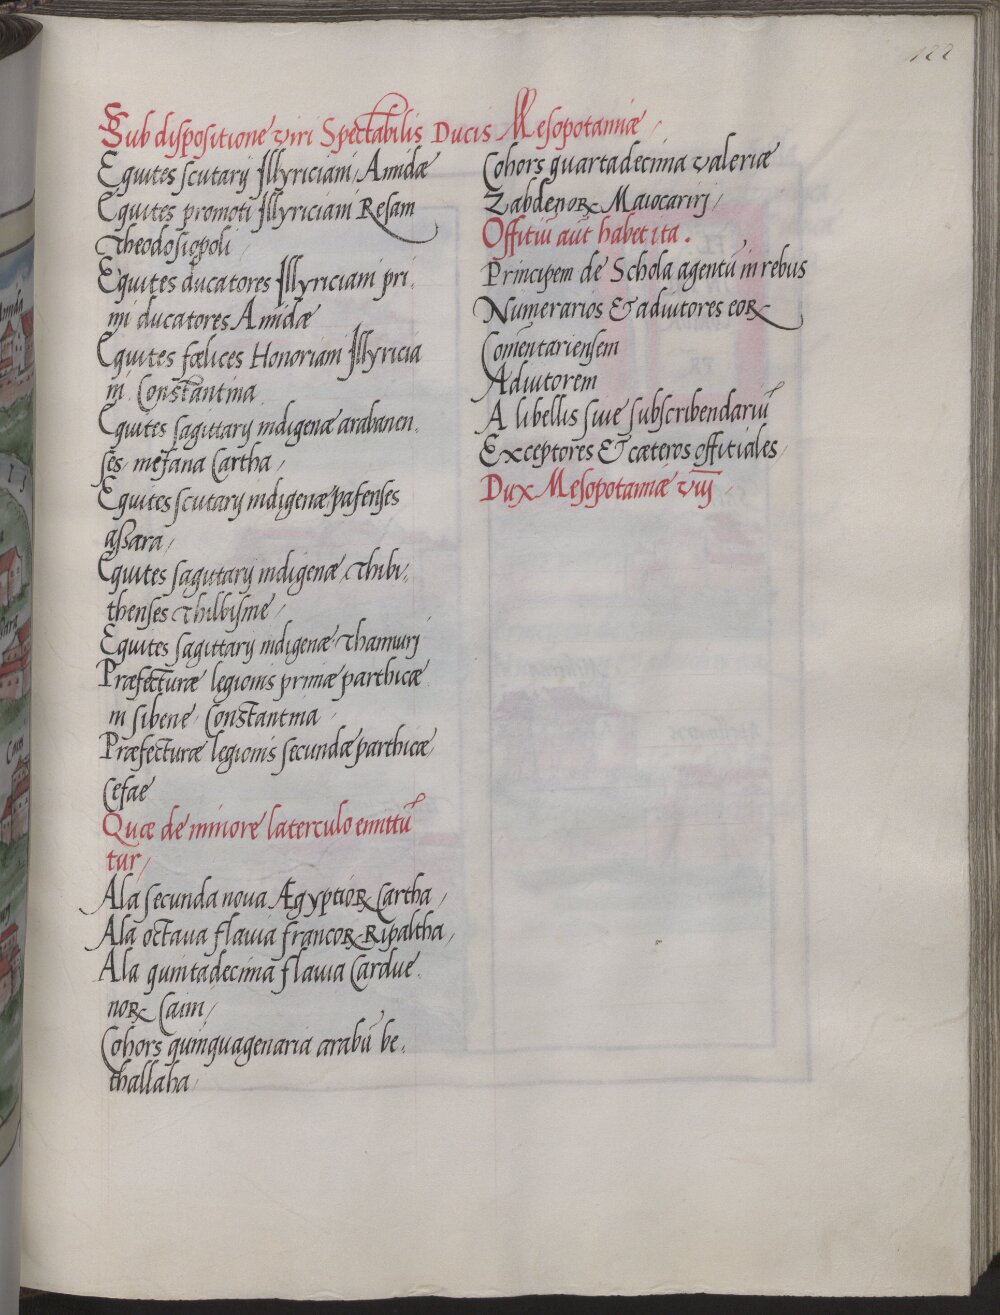 122
Sub dispositione viri Spectabilis Ducis Mesopotamiæ
Equites scutarij Illyriciani, Amidæ
Equites promoti Illyriciani Resam
Theodosiopoli
Equites ducatores Illyriciani pri,
mi ducatores Amidæ
Equites fœlices Honoriani Illyricia
ni Constantina
Equites sagittarij indigenæ arabanen
ses, mefana Cartha
Equites scutarij indigenæ pafenses
assara
Equites sagittarij indigenæ Thibi,
thenses Thilbisme
Equites sagittarij indigenæ Thamurj
Præfecturæ legionis primæ parthicæ
ni sibene Constantina
Præfecturæ legionis secundæ parthicæ
Cefae
Quæ de minore laterculo emittū
tur
Ala secunda noua Ægyptioꝝ Cartha
Ala octaua flauia francoꝝ Ripaltha
Ala quintadecima flauia Cardue
noꝝ Caini
Cohors quinquagenaria arabū be,
thallaha
Cohors quartadecima valeriæ
Zabdenoꝝ Maiocarirj
Offitiū aūt habet ita.
Principem de Schola agentū in rebus
Numerarios & adiutores eoꝝ
Comētariensem
Adiutorem
A libellis siue subscribendariū
Exceptores & cæteros offitiales
Dux Mesopotamiæ viij
Amida